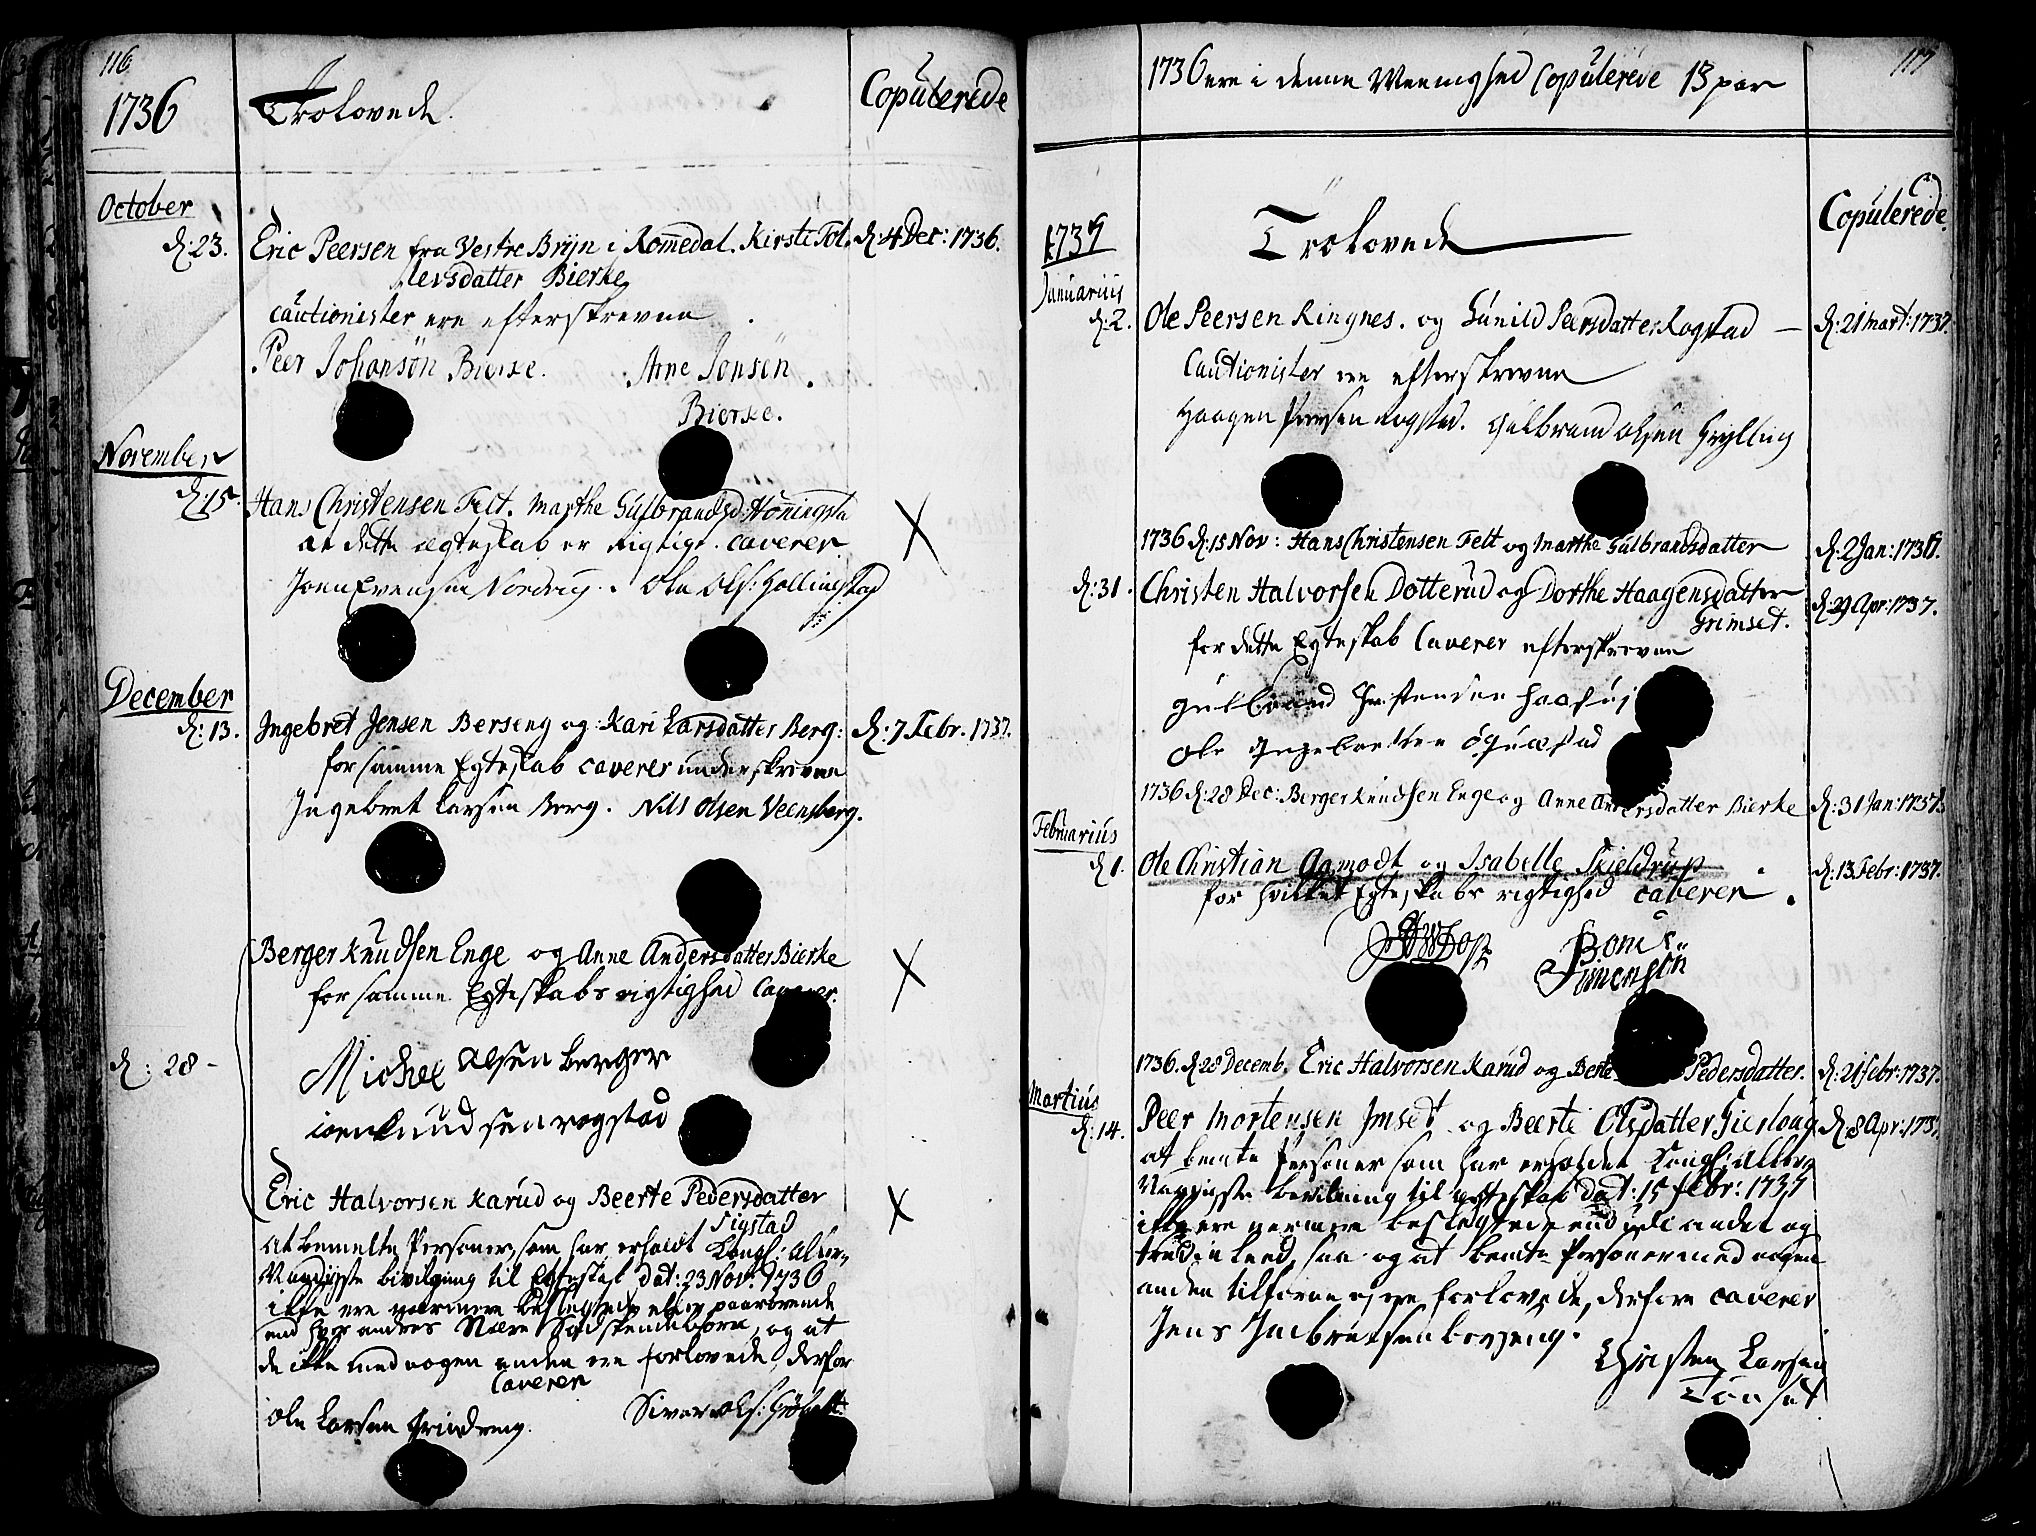 116
1736
Trolovede.
Copulerede
October
d: 23.
Eric Peersen fra Vestre Bryn i Romedal. Kirsti Tol-
d: 4 Dec: 1736.
levsdatter Bierke
cautionister ere efterskrevne
Peer Johansön Bierke. Arne Jonsen
Bierke.
November
d: 15.
Hans Christensen Felt. Marthe Gulbrandsd: Honingsta
at dette ægteskab er rigtigt. caverer.
Joen Evensen Nordvig. Ole Ols:
December
d: 13.
Ingebret Jensen Berseng og Kari Larsdatter Berg:
d: 7 Febr. 1737.
for samme Egteskab caverer underskrevne
Ingebret Larsen Berg. Nils Olsen Veensberg.
Berger Knudsen Enge og Anne Andersdatter Bierke
for samme Egteskabs rigtighed caverer.
d: 28-
Michel Olsen berger
ioen knudsen rogstad
Eric Halvorsen Karud og Beerte Pedersdatter
Sigstad
at bemelte Personer, som har erholdt Kongl: Aller-
Naadigste bevilgning til Egteskab dat: 23 Nov: 1736
ikke ere nærmere beslegtede eller paarørende
end hver andres Nære Sødskendebørn, og at
de ikke med nogen anden ere forlovede, derfor
caverer
Ole Larsen Grindreng. Siver Ols:
117
1736 ere i denne Meenighed Copulerede 13 par
1737
Trolovede
Copulerede.
Januarius
d: 2.
Ole Peersen Ringnes. og Gunild Peersdatter Rogstad
d: 21 Mart: 1737.
Cautionister ere efterskrevne
Haagen Peersen Rogstad. Gulbrand Olsen Hylling
1736 d: 15 Nov: Hans Christensen Felt og Marthe Gulbrandsdatter
d: 2 Jan: 1736.
d: 31.
Christen Halvorsen Dotterud og Dorthe Haagensdatter
d: 29 Apr: 1737.
Grimset.
for dette Egteskab Caverer efterskrevne
gulbrand
ole Ingebretsen
1736 d: 28 Dec: Berger Knudsen Enge og Anne Andersdatter Bierke
d: 31 Jan: 1737.
Februarius
d 1.
Ole Christian Aamodt og Isabelle Skieldrup
d: 13 Febr: 1737.
for hvilket Egteskabs rigtighed caverer.
Simonsön
1736. d: 28 Decemb. Eric Halvorsen Karud og Beerte Pedersdatter.
d: 21 Febr: 1737.
Martius
d: 14.
Peer Mortensen Imset og Beerte Olsdatter
d 8 Apr: 1737.
at bemte Personer som har erholdet Kongl: Aller-
Naadigste bevilning til ægteskab dat: 15 Febr: 1737
ikke ere nermere beslegtede end udi andet og
tredie Leed, saa og at bemte Personer med nogen
anden tilforne ere forlovede, derfore caverer
Jens Berseng.
Christen Larsen
Tønset